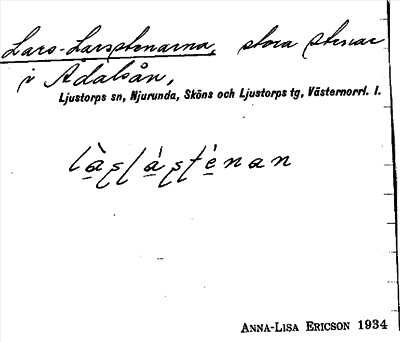 Lars-Larsstenarna, stora stenar
i Ådalsån,
Ljustorps sn, Njurunda, Sköns och Ljustorps tg, Västernorrl. l.
ANNA-LISA ERICSON 1934